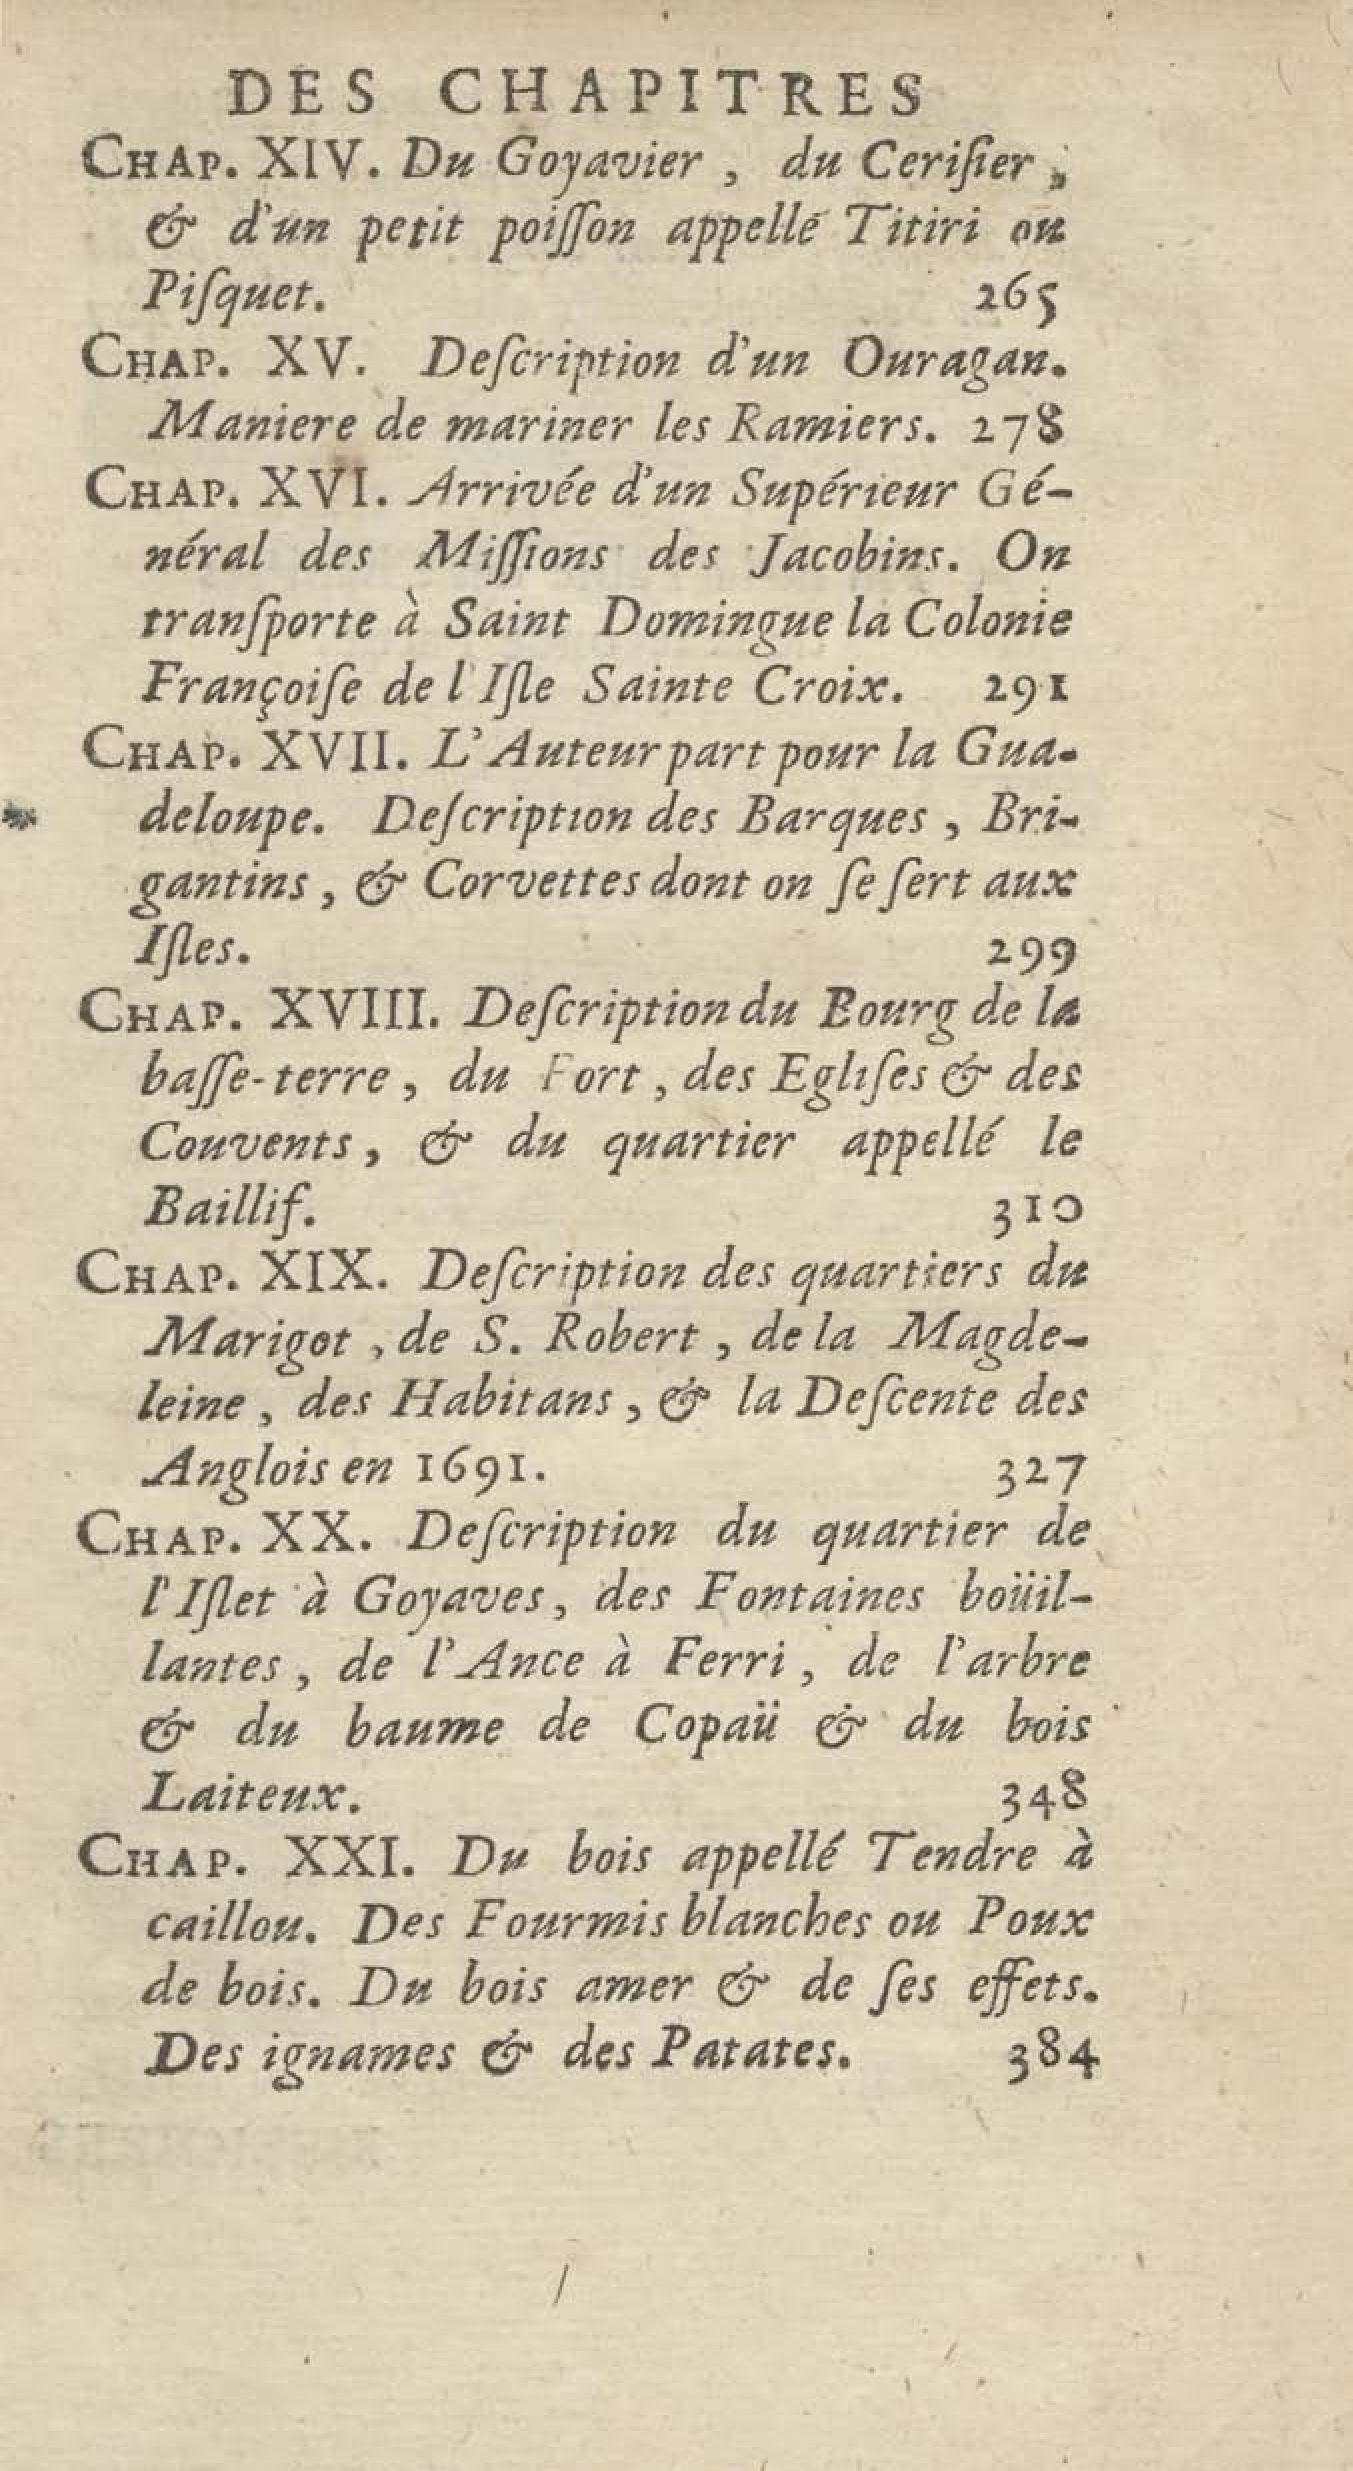 DES CHAPITRES
CHAP. XIV. Du Goyavier, du Ceriſier,
& d'un petit poiſſon appellé Titiri ou
Piſquet. 265
CHAP. XV. Deſcription d'un Ouragan.
Maniere de mariner les Ramiers. 278
CHAP. XVI. Arrivée d'un Supérieur Gé-
néral des Miſſions des Jacobins. On
tranſporte à Saint Domingue la Colonie
Françoiſe de l'Iſle Sainte Croix. 291
CHAP. XVII. L'Auteur part pour la Gua-
deloupe. Deſcription des Barques, Bri-
gantins, & Corvettes dont on ſe ſert aux
Iſles. 299
CHAP. XVIII. Deſcription du Bourg de la
baſſe-terre, du Fort, des Egliſes & des
Couvents, & du quartier appellé le
Baillif. 310
CHAP. XIX. Deſcription des quartiers du
Marigot, de S. Robert, de la Magde-
leine, des Habitans, & la Deſcente des
Anglois en 1691. 327
CHAP. XX. Deſcription du quartier de
l'Iſlet à Goyaves, des Fontaines boüil-
lantes, de l'Ance à Ferri, de l'arbre
& du baume de Copaü & du bois
Laiteux. 348
CHAP. XXI. Du bois appellé Tendre à
caillou. Des Fourmis blanches ou Poux
de bois. Du bois amer & de ſes effets.
Des ignames & des Patates. 384